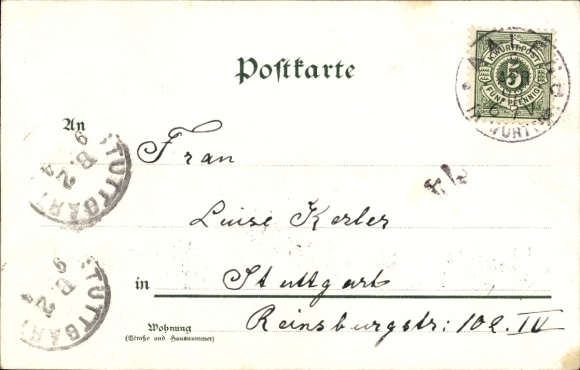 Postkarte
K. WÜRTT. POST
5
FÜNF PFENNIG
An
Frau
Luise Kerler
in Stuttgart
Wohnung
(Straße und Hausnummer)
Reinsburgstr: 102. IV
STUTTGART
STUTTGART